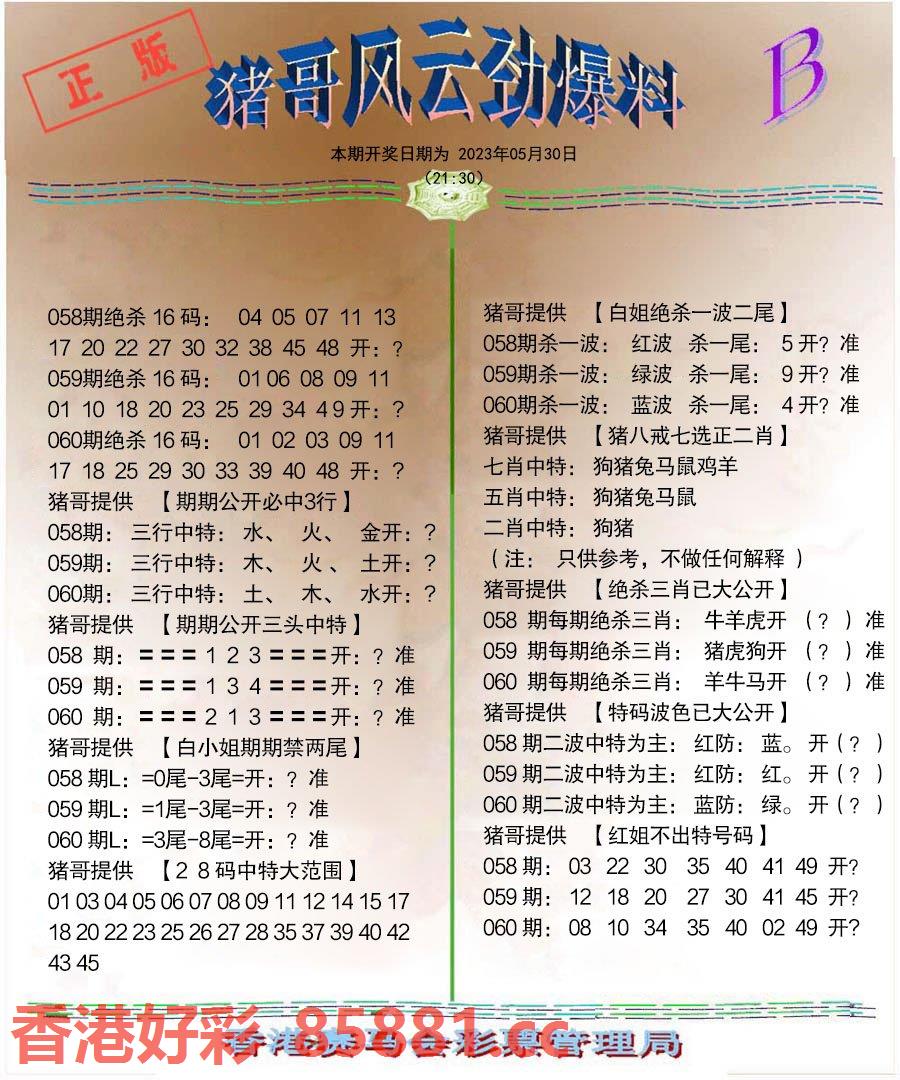 正版
猪哥风云劲爆料
B
本期开奖日期为 2023年05月30日
(21:30)
058期绝杀 16 码： 04 05 07 11 13
17 20 22 27 30 32 38 45 48 开：?
059期绝杀 16 码： 01 06 08 09 11
01 10 18 20 23 25 29 34 49 开：?
060期绝杀 16 码： 01 02 03 09 11
17 18 25 29 30 33 39 40 48 开：?
猪哥提供 【期期公开必中3行】
058期： 三行中特： 水、 火、 金开：?
059期： 三行中特： 木、 火、 土开：?
060期： 三行中特： 土、 木、 水开：?
猪哥提供 【期期公开三头中特】
058 期：＝＝＝１２３＝＝＝开：? 准
059 期：＝＝＝１３４＝＝＝开：? 准
060 期：＝＝＝２１３＝＝＝开：? 准
猪哥提供 【白小姐期期禁两尾】
058 期L：=0尾-3尾=开：? 准
059 期L：=1尾-3尾=开：? 准
060 期L：=3尾-8尾=开：? 准
猪哥提供 【２８码中特大范围】
01 03 04 05 06 07 08 09 11 12 14 15 17
18 20 22 23 25 26 27 28 35 37 39 40 42
43 45
猪哥提供 【白姐绝杀一波二尾】
058期杀一波： 红波 杀一尾： 5 开? 准
059期杀一波： 绿波 杀一尾： 9 开? 准
060期杀一波： 蓝波 杀一尾： 4 开? 准
猪哥提供 【猪八戒七选正二肖】
七肖中特： 狗猪兔马鼠鸡羊
五肖中特： 狗猪兔马鼠
二肖中特： 狗猪
（注： 只供参考，不做任何解释）
猪哥提供 【绝杀三肖已大公开】
058 期每期绝杀三肖： 牛羊虎开 （?）准
059 期每期绝杀三肖： 猪虎狗开 （?）准
060 期每期绝杀三肖： 羊牛马开 （?）准
猪哥提供 【特码波色已大公开】
058 期二波中特为主： 红防： 蓝。开（?）
059 期二波中特为主： 红防： 红。开（?）
060 期二波中特为主： 蓝防： 绿。开（?）
猪哥提供 【红姐不出特号码】
058 期： 03 22 30 35 40 41 49 开?
059 期： 12 18 20 27 30 41 45 开?
060 期： 08 10 34 35 40 02 49 开?
香港好彩 85881.cc
香港赛马会彩票管理局